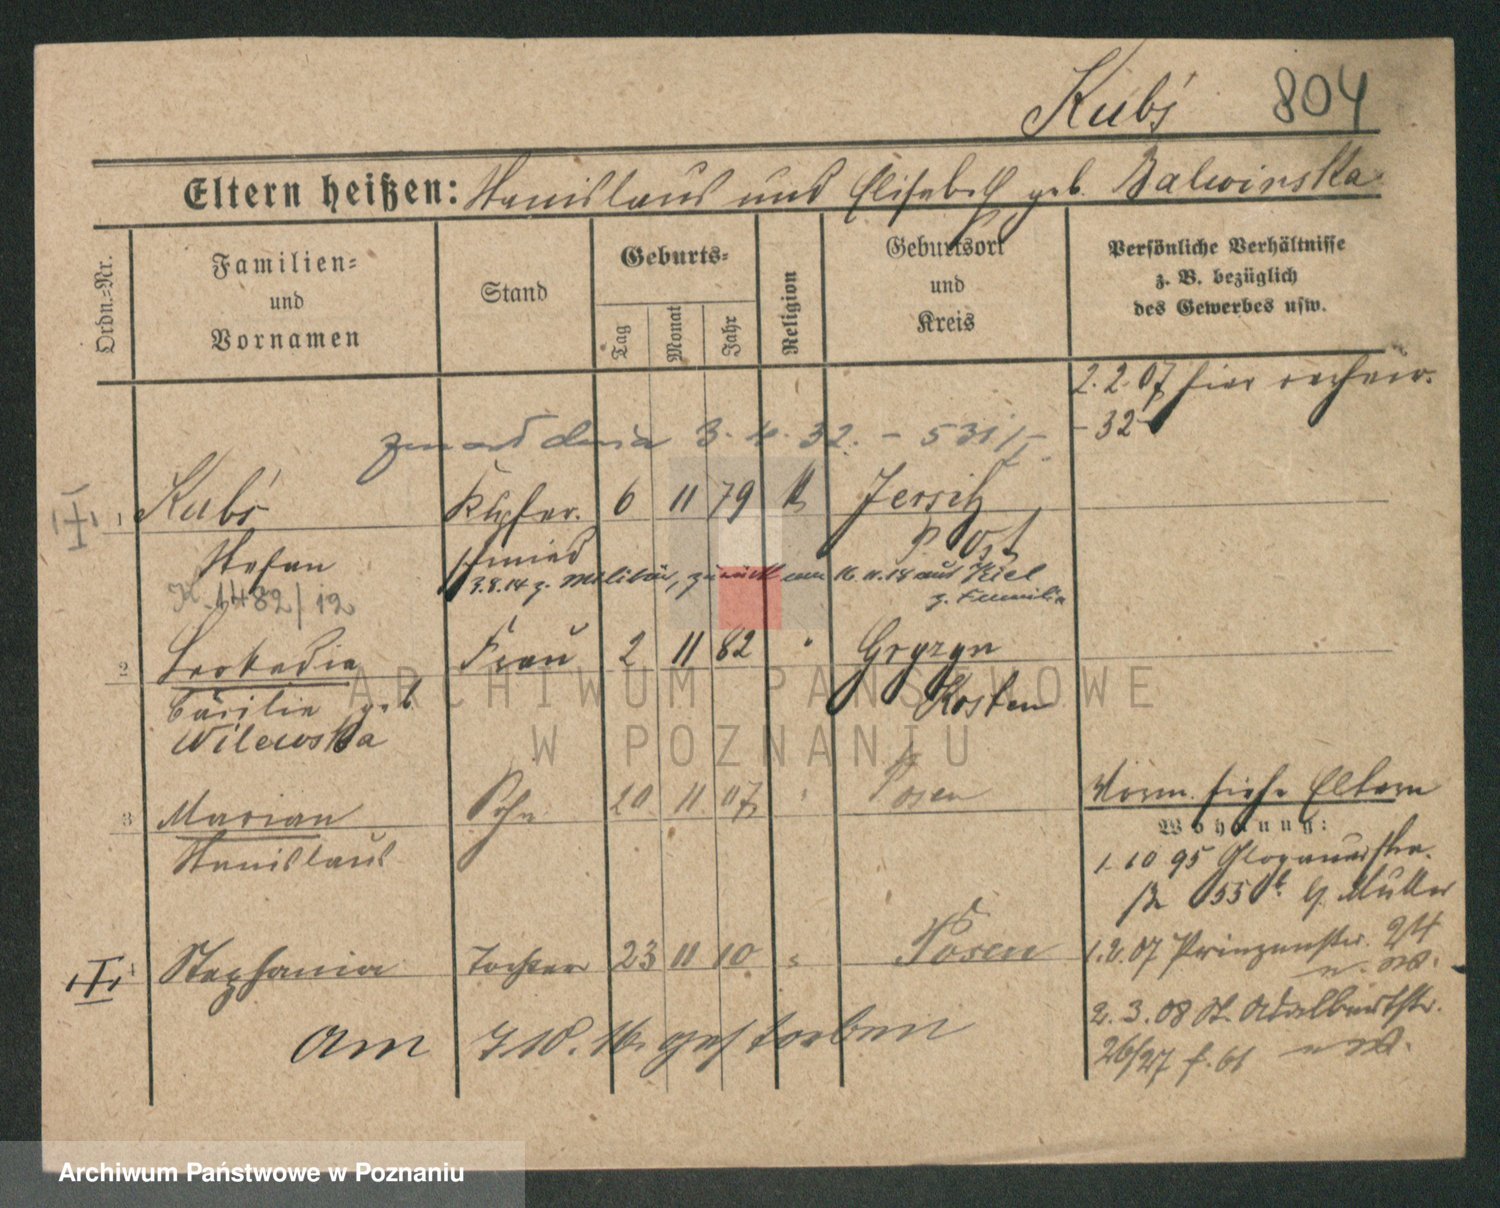 Kubś 804
Eltern heißen: Stanislaus und Elisabeth geb. Balwinska
Ordn.=Nr.
Familien=
und
Vornamen
Stand
Geburts=
Tag
Monat
Jahr
Religion
Geburtsort
und
Kreis
Persönliche Verhältnisse
z. B. bezüglich
des Gewerbes usw.
2. 2. 07 hier
- 32 -
zmarł dnia 3. 4. 32. - 531/I.
1 Kubś Kupfer. 6 11 79 k Jersitz
Stefan schmied P. Ost
3.8.14 z. Militär, zurück am 16.11.18 aus Kiel
z. Familie
K. 1482/12
2 Leokadia Frau 2 11 82 " Gryzyn
Cäcilie geb Kosten
Wilewska
3 Marian Sohn 20 11 07 " Posen
Stanislaus
Vorm. siehe Eltern
Wohnung:
1. 10 95 Glogauerstra.
55 b. Müller
4 Stephania Tochter 23 11 10 " Posen
1.2.07 Prinzenstr. 24
Am 7.10.16. gestorben
2. 3. 08 St. Adalbertstr.
26/27
ARCHIWUM PAŃSTWOWE
W POZNANIU
Archiwum Państwowe w Poznaniu